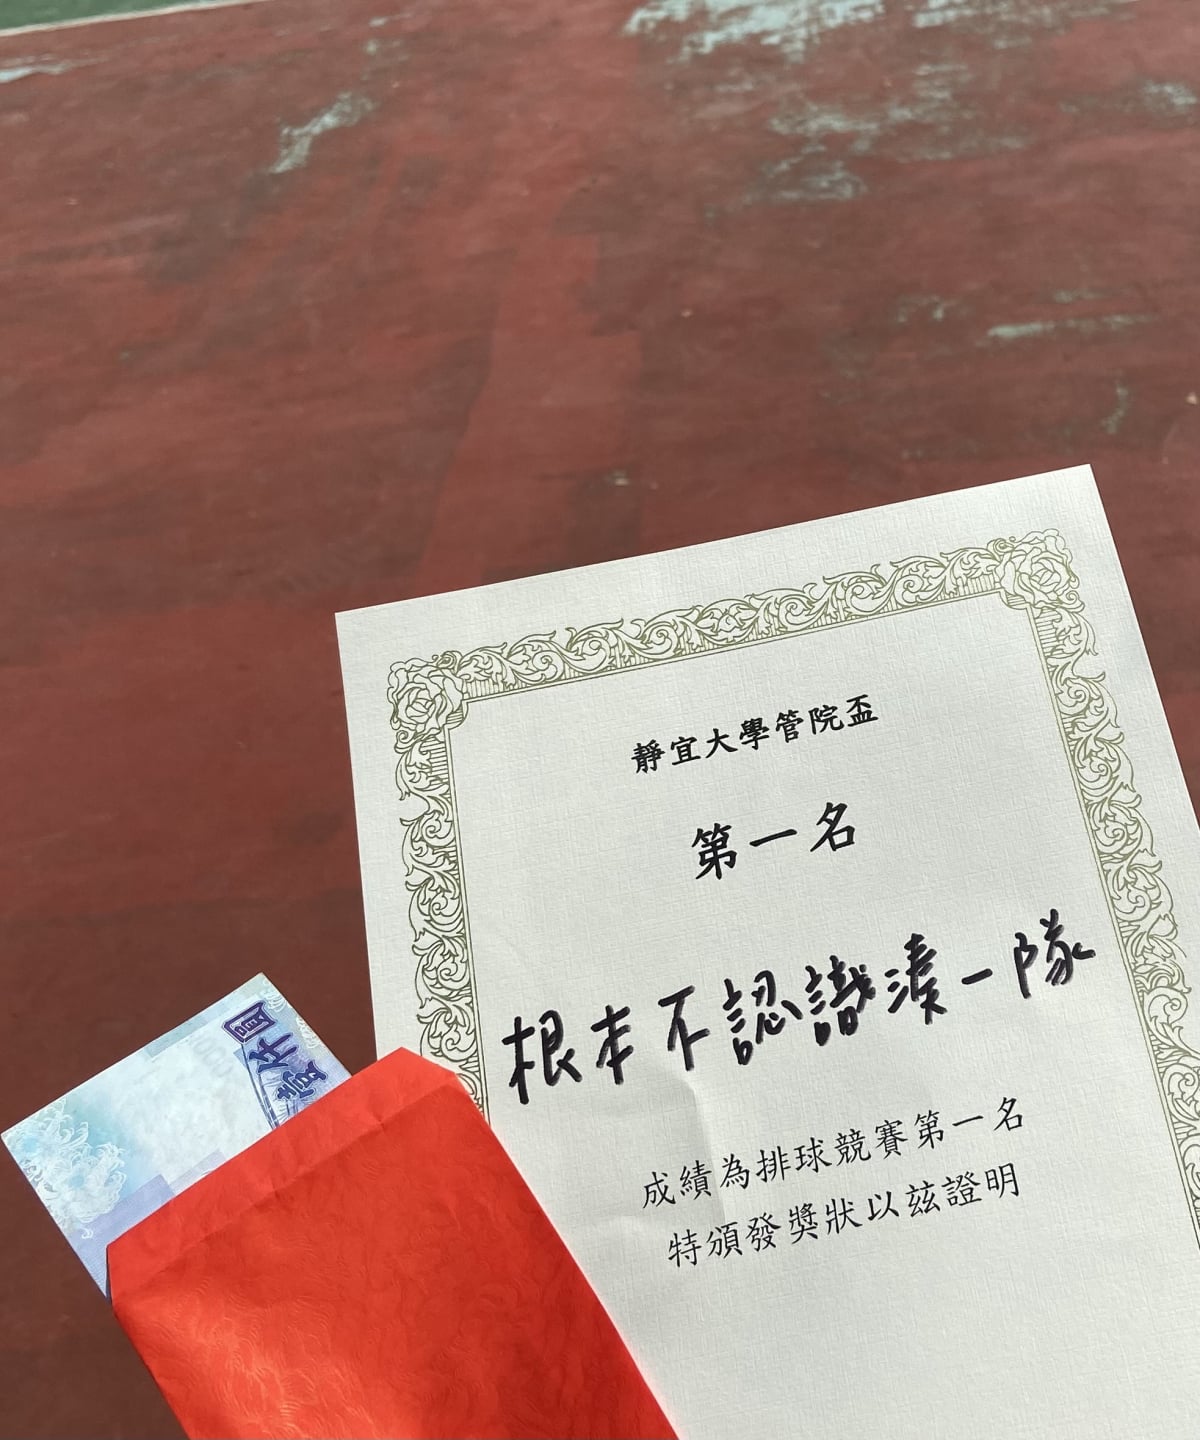 靜宜大學管院盃
第一名
根本不認識湊一隊
成績為排球競賽第一名
特頒發獎狀以茲證明
圓仟壹